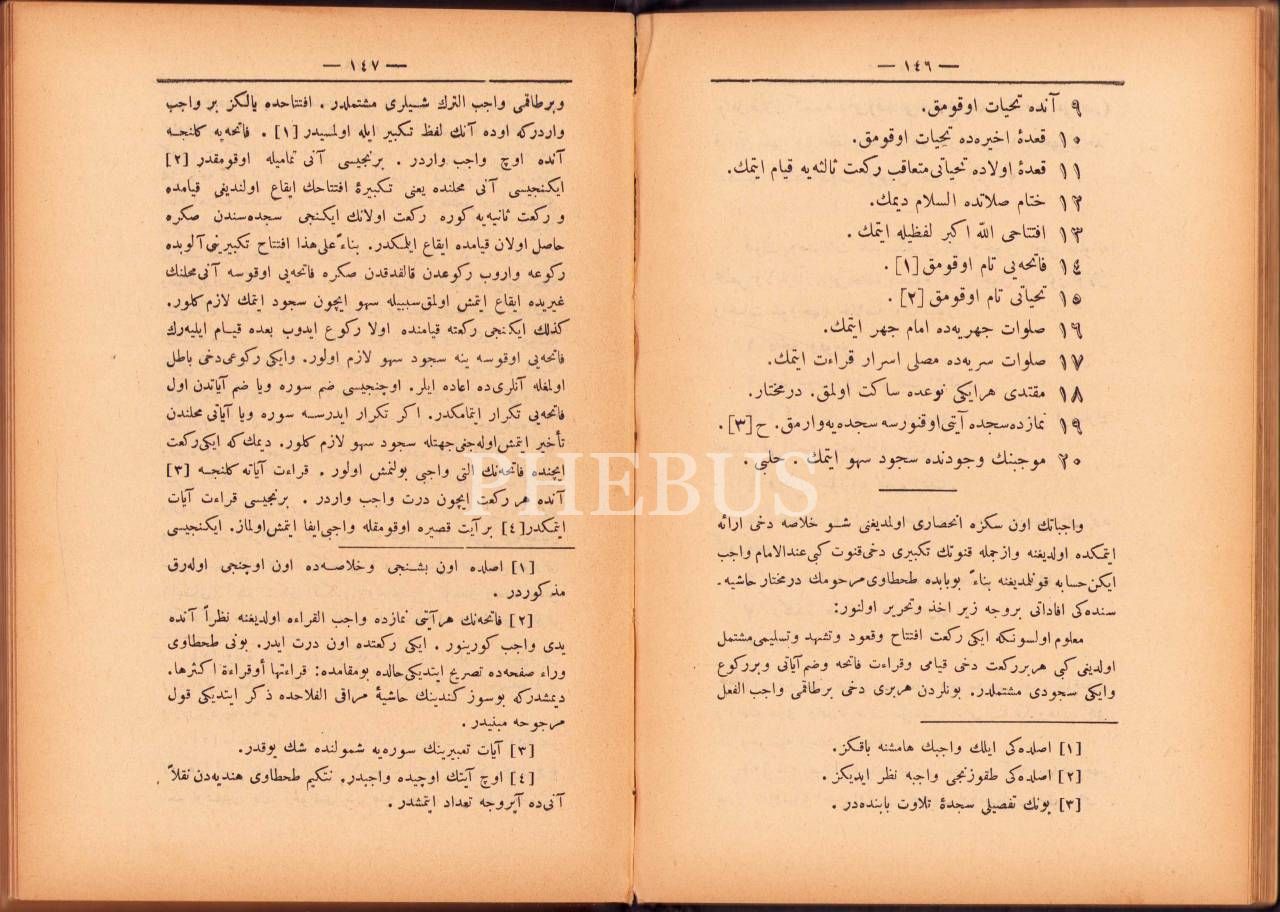 — ١٤٦ —
٩ آنده تحيات اوقومق.
١٠ قعدۀ اخيره‌ده تحيات اوقومق.
١١ قعدۀ اولاده تحياتى متعاقب ركعت ثالثه‌يه قيام ايتمك.
١٢ ختام صلاتده السلام ديمك.
١٣ افتتاحى الله اكبر لفظيله ايتمك.
١٤ فاتحه‌يى تام اوقومق [١].
١٥ تحياتى تام اوقومق [٢].
١٦ صلوات جهريه‌ده امام جهر ايتمك.
١٧ صلوات سريه‌ده مصلى اسرار قراءت ايتمك.
١٨ مقتدى هر ايكى نوعده ساكت اولمق. درمختار.
١٩ نمازده سجده آيتى اوقنورسه سجده‌يه وارمق. ح [٣].
٢٠ موجبنك وجودنده سجود سهو ايتمك. حلبى.
واجباتك اون سكزه انحصارى اولمديغنى شو خلاصه دخى ارائه
ايتمكده اولديغنه وازجمله قنوتك تكبيرى دخى قنوت كبى عندالامام واجب
ايكن حسابه قونلمديغنه بناءً بوبابده طحطاوى مرحومك درمختار حاشيه-
سنده‌كى افاداتى بروجه زير اخذ وتحرير اولنور:
معلوم اولسونكه ايكى ركعت افتتاح وقعود وتشهد وتسليمى مشتمل
اولديغى كبى هر بر ركعت دخى قيامى وقراءت فاتحه وضم آياتى وبر ركوع
وايكى سجودى مشتملدر. بونلردن هربرى دخى برطاقمى واجب الفعل
[١] اصلده‌كى ايلك واجبك هامشنه باقكز.
[٢] اصلده‌كى طقوزنجى واجبه نظر ايديكز.
[٣] بونك تفصيلى سجدۀ تلاوت بابنده‌در.
— ١٤٧ —
وبرطاقمى واجب الترك شيلرى مشتملدر. افتتاحده يالكز بر واجب
واردركه اوده آنك لفظ تكبير ايله اولمسيدر [١]. فاتحه‌يه كلنجه
آنده اوچ واجب واردر. برنجيسى آنى تماميله اوقومقدر [٢]
ايكنجيسى آنى محلنده يعنى تكبيرۀ افتتاحك ايقاع اولنديغى قيامده
و ركعت ثانيه‌يه كوره ركعت اولانك ايكنجى سجده‌سندن صكره
حاصل اولان قيامده ايقاع ايلمكدر. بناءً على هذا افتتاح تكبيرينى آلوبده
ركوعه واروب ركوعدن قالقدقدن صكره فاتحه‌يى اوقوسه آنى محلنك
غيريده ايقاع ايتمش اولمق سببيله سهو ايچون سجود ايتمك لازم كلور.
كذلك ايكنجى ركعته قيامنده اولا ركوع ايدوب بعده قيام ايليه‌رك
فاتحه‌يى اوقوسه ينه سجود سهو لازم اولور. وايكى ركوعى دخى باطل
اولمغله آنلرى‌ده اعاده ايلر. اوچنجيسى ضم سوره ويا ضم آياتدن اول
فاتحه‌يى تكرار ايتمامكدر. اكر تكرار ايدرسه سوره ويا آياتى محلندن
تأخير ايتمش اوله‌جغى جهتله سجود سهو لازم كلور. ديمك‌كه ايكى ركعت
ايچنده فاتحه‌نك التى واجبى بولنمش اولور. قراءت آياته كلنجه [٣]
آنده هر ركعت ايچون درت واجب واردر. برنجيسى قراءت آيات
ايتمكدر [٤] بر آيت قصيره اوقومقله واجبى ايفا ايتمش اولماز. ايكنجيسى
[١] اصلده اون بشنجى وخلاصه‌ده اون اوچنجى اوله‌رق
مذكوردر.
[٢] فاتحه‌نك هر آيتى نمازده واجب القراءه اولديغنه نظراً آنده
يدى واجب كورينور. ايكى ركعتده اون درت ايدر. بونى طحطاوى
وراء صفحه‌ده تصريح ايتديكى حالده بومقامده: قراءتها أو قراءة اكثرها.
ديمشدركه بوسوز كندينك حاشيۀ مراقى الفلاحده ذكر ايتديكى قول
مرجوحه مبنيدر.
[٣] آيات تعبيرينك سوره‌يه شمولنده شك يوقدر.
[٤] اوچ آيتك اوچيده واجبدر. نتكيم طحطاوى هنديه‌دن نقلاً
آنى‌ده آيروجه تعداد ايتمشدر.
PHEBUS